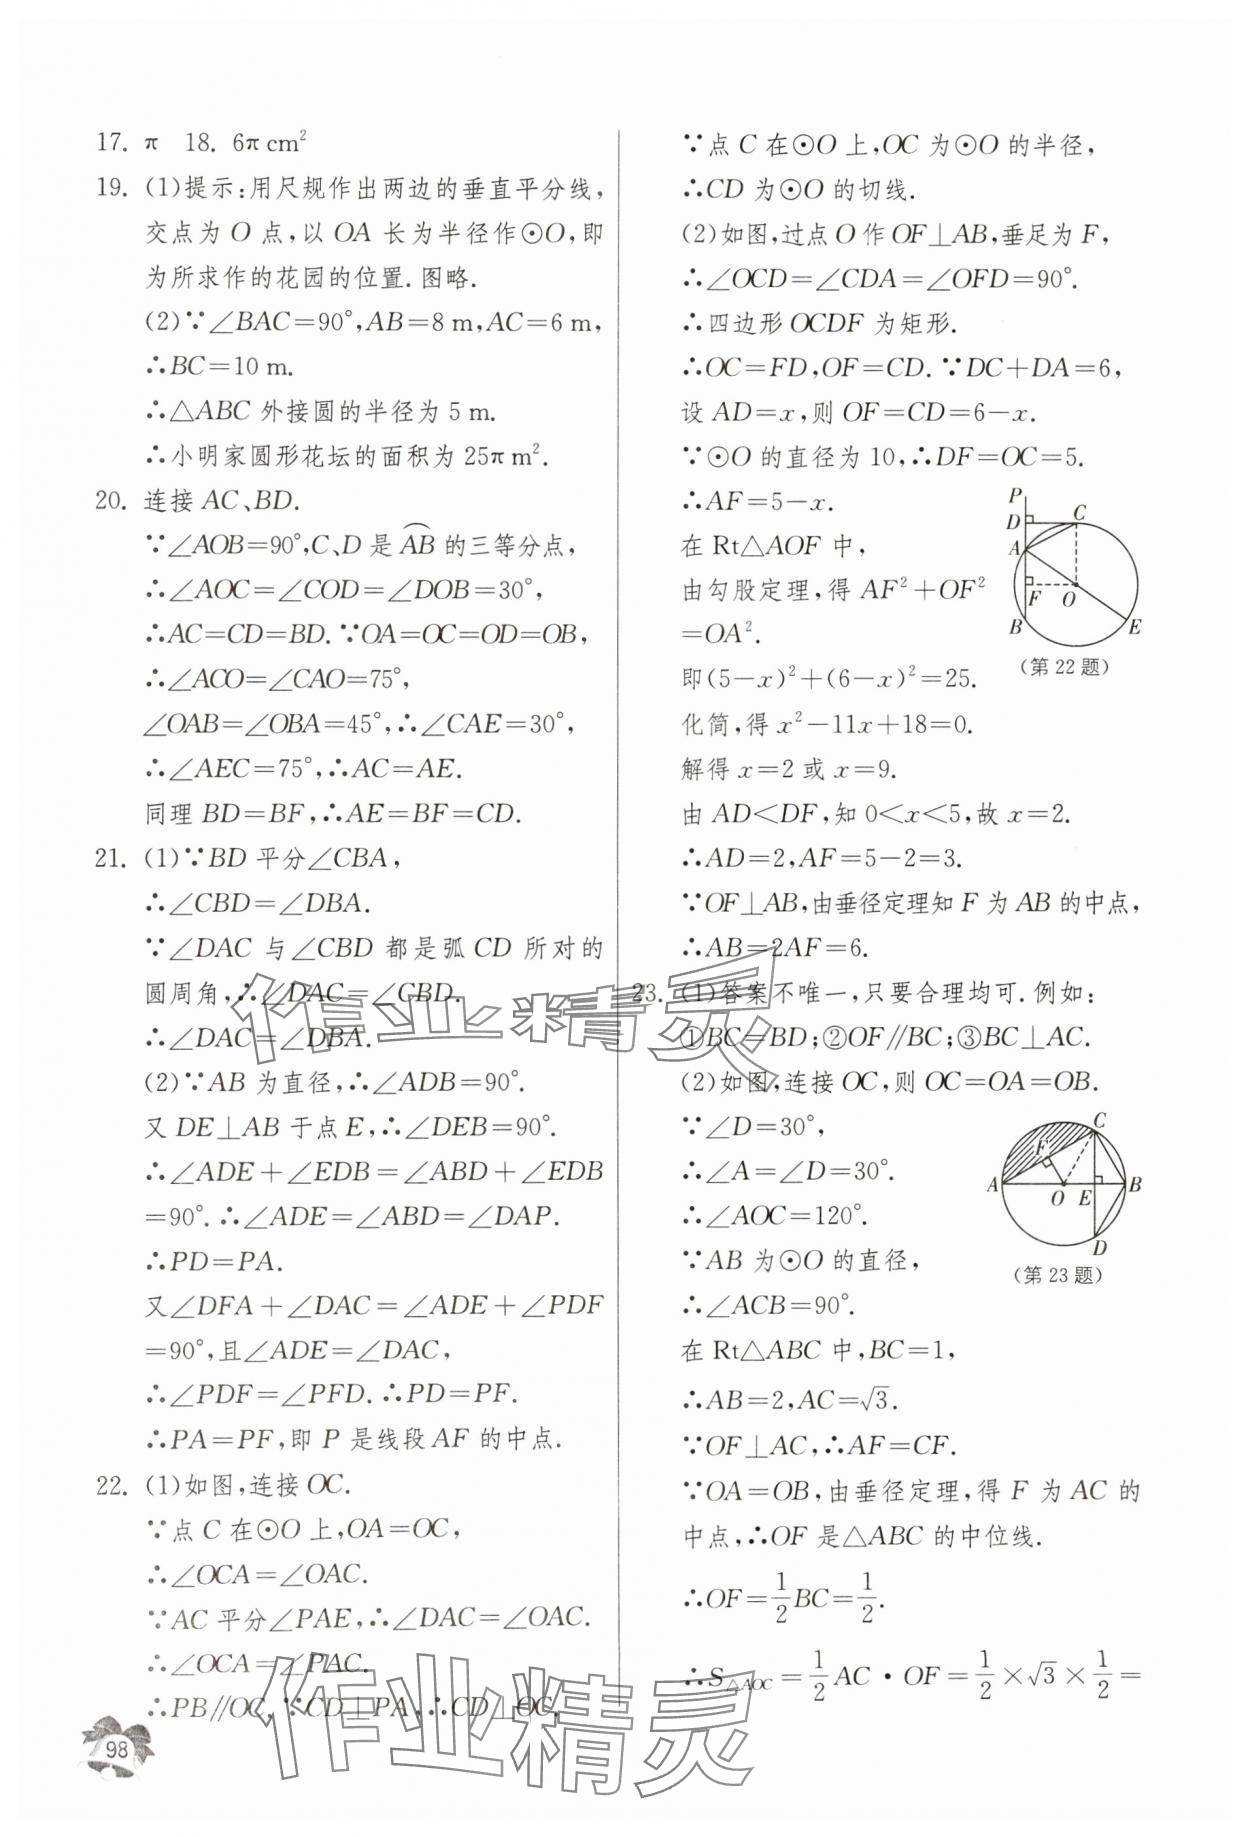 17. π　18. 6π cm²
19. (1)提示:用尺规作出两边的垂直平分线,
交点为 O 点,以 OA 长为半径作⊙O,即
为所求作的花园的位置.图略.
(2)∵∠BAC=90°,AB=8 m,AC=6 m,
∴BC=10 m.
∴△ABC 外接圆的半径为 5 m.
∴小明家圆形花坛的面积为 25π m².
20. 连接 AC、BD.
∵∠AOB=90°,C、D 是 $\overset{\frown}{AB}$ 的三等分点,
∴∠AOC=∠COD=∠DOB=30°,
∴AC=CD=BD.∵OA=OC=OD=OB,
∴∠ACO=∠CAO=75°,
∠OAB=∠OBA=45°,∴∠CAE=30°,
∴∠AEC=75°,∴AC=AE.
同理 BD=BF,∴AE=BF=CD.
21. (1)∵BD 平分∠CBA,
∴∠CBD=∠DBA.
∵∠DAC 与∠CBD 都是弧 CD 所对的
圆周角,∴∠DAC=∠CBD.
∴∠DAC=∠DBA.
(2)∵AB 为直径,∴∠ADB=90°.
又 DE⊥AB 于点 E,∴∠DEB=90°.
∴∠ADE+∠EDB=∠ABD+∠EDB
=90°.∴∠ADE=∠ABD=∠DAP.
∴PD=PA.
又∠DFA+∠DAC=∠ADE+∠PDF
=90°,且∠ADE=∠DAC,
∴∠PDF=∠PFD.∴PD=PF.
∴PA=PF,即 P 是线段 AF 的中点.
22. (1)如图,连接 OC.
∵点 C 在⊙O 上,OA=OC,
∴∠OCA=∠OAC.
∵AC 平分∠PAE,∴∠DAC=∠OAC.
∴∠OCA=∠PAC.
∴PB∥OC.∵CD⊥PA,∴CD⊥OC,
98
∵点 C 在⊙O 上,OC 为⊙O 的半径,
∴CD 为⊙O 的切线.
(2)如图,过点 O 作 OF⊥AB,垂足为 F,
∴∠OCD=∠CDA=∠OFD=90°.
∴四边形 OCDF 为矩形.
∴OC=FD,OF=CD.∵DC+DA=6,
设 AD=x,则 OF=CD=6−x.
∵⊙O 的直径为 10,∴DF=OC=5.
∴AF=5−x.
在 Rt△AOF 中,
由勾股定理,得 AF²+OF²
=OA².
即(5−x)²+(6−x)²=25.
化简,得 x²−11x+18=0.
解得 x=2 或 x=9.
由 AD<DF,知 0<x<5,故 x=2.
∴AD=2,AF=5−2=3.
∵OF⊥AB,由垂径定理知 F 为 AB 的中点,
∴AB=2AF=6.
P
D
C
A
F
O
B
E
(第22题)
23. (1)答案不唯一,只要合理均可.例如:
①BC=BD;②OF∥BC;③BC⊥AC.
(2)如图,连接 OC,则 OC=OA=OB.
∵∠D=30°,
∴∠A=∠D=30°.
∴∠AOC=120°.
∵AB 为⊙O 的直径,
∴∠ACB=90°.
在 Rt△ABC 中,BC=1,
∴AB=2,AC=√3.
∵OF⊥AC,∴AF=CF.
∵OA=OB,由垂径定理,得 F 为 AC 的
中点,∴OF 是△ABC 的中位线.
∴OF=1/2 BC=1/2.
∴S△AOC=1/2 AC·OF=1/2×√3×1/2=
C
F
A
O
E
B
D
(第23题)
作业精灵
作业精灵